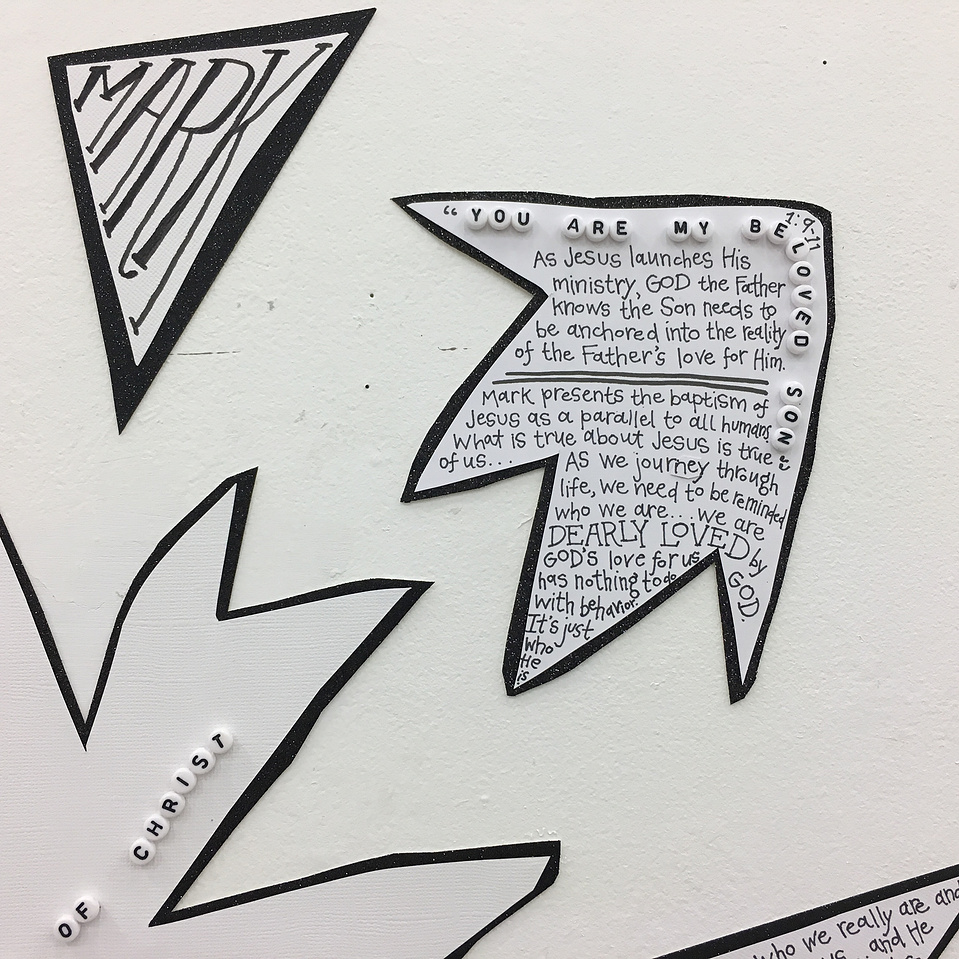 MARK
"YOU ARE MY BELOVED SON"
1:9-11
As Jesus launches His
ministry, GOD the Father
knows the Son needs to
be anchored into the reality
of the Father's love for Him.
Mark presents the baptism of
Jesus as a parallel to all humans.
What is true about Jesus is true
of us...
As we journey through
life, we need to be reminded
who we are... we are
DEARLY LOVED by
GOD.
GOD'S love for us
has nothing to do
with behavior.
It's just
who
He
is.
OF CHRIST
who we really are and
and He